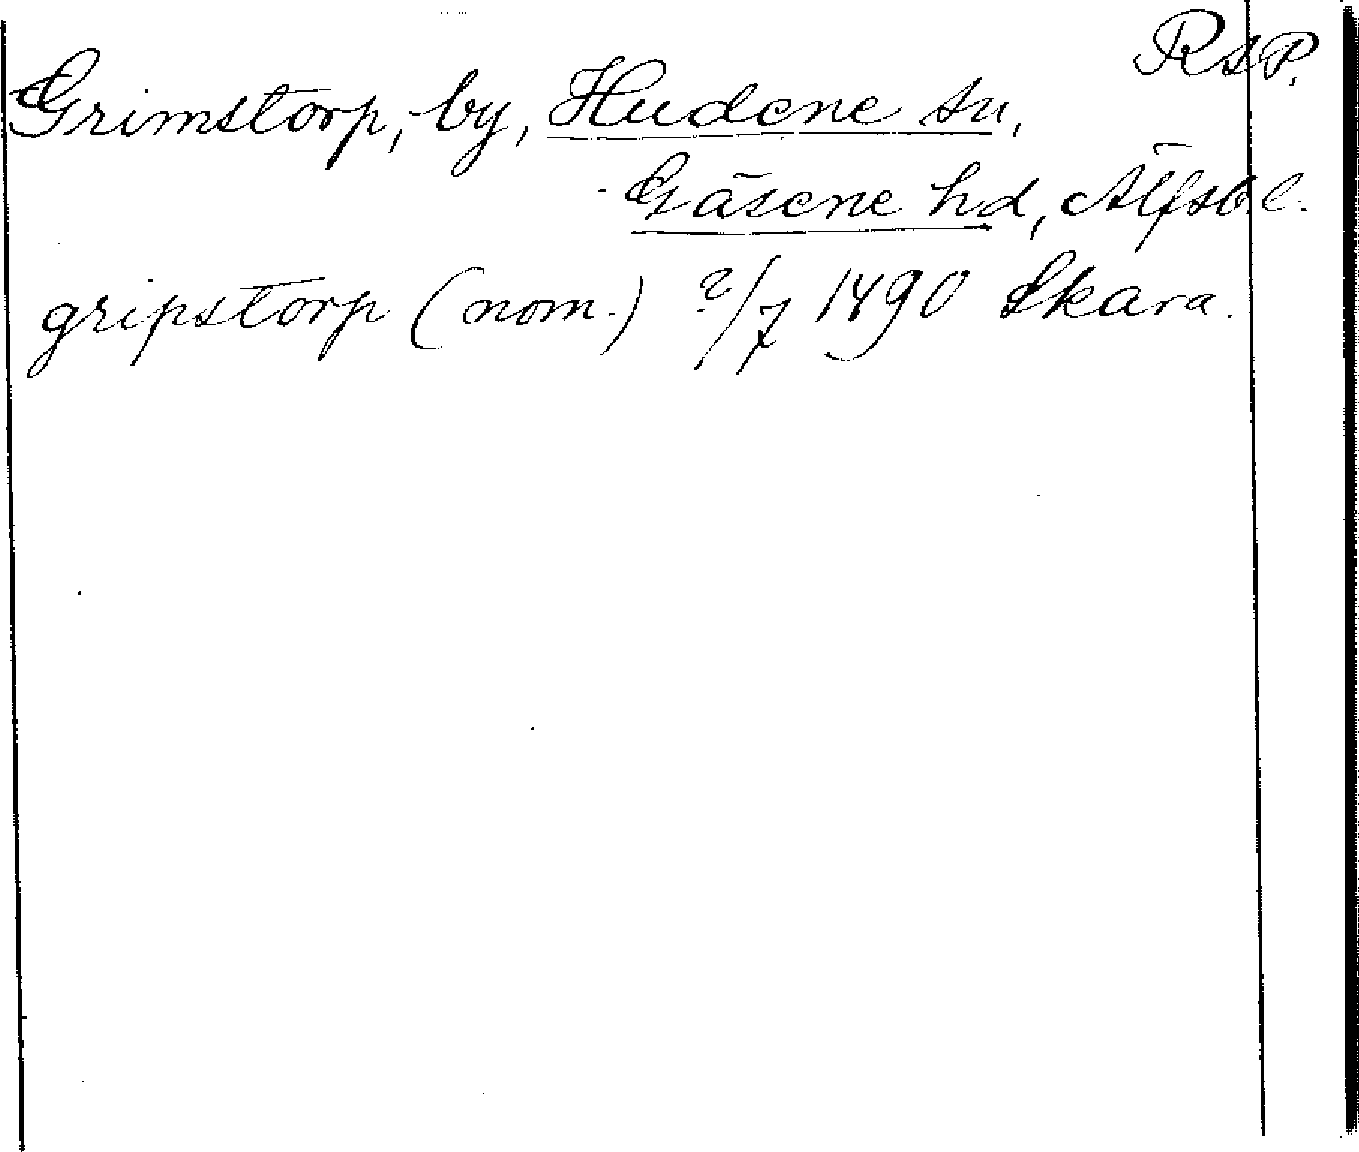 RAP.
Grimstorp, by, Hudene sn,
Gäsene hd, Älfsb. l.
gripstorp (nom.) 2/7 1490 Skara.